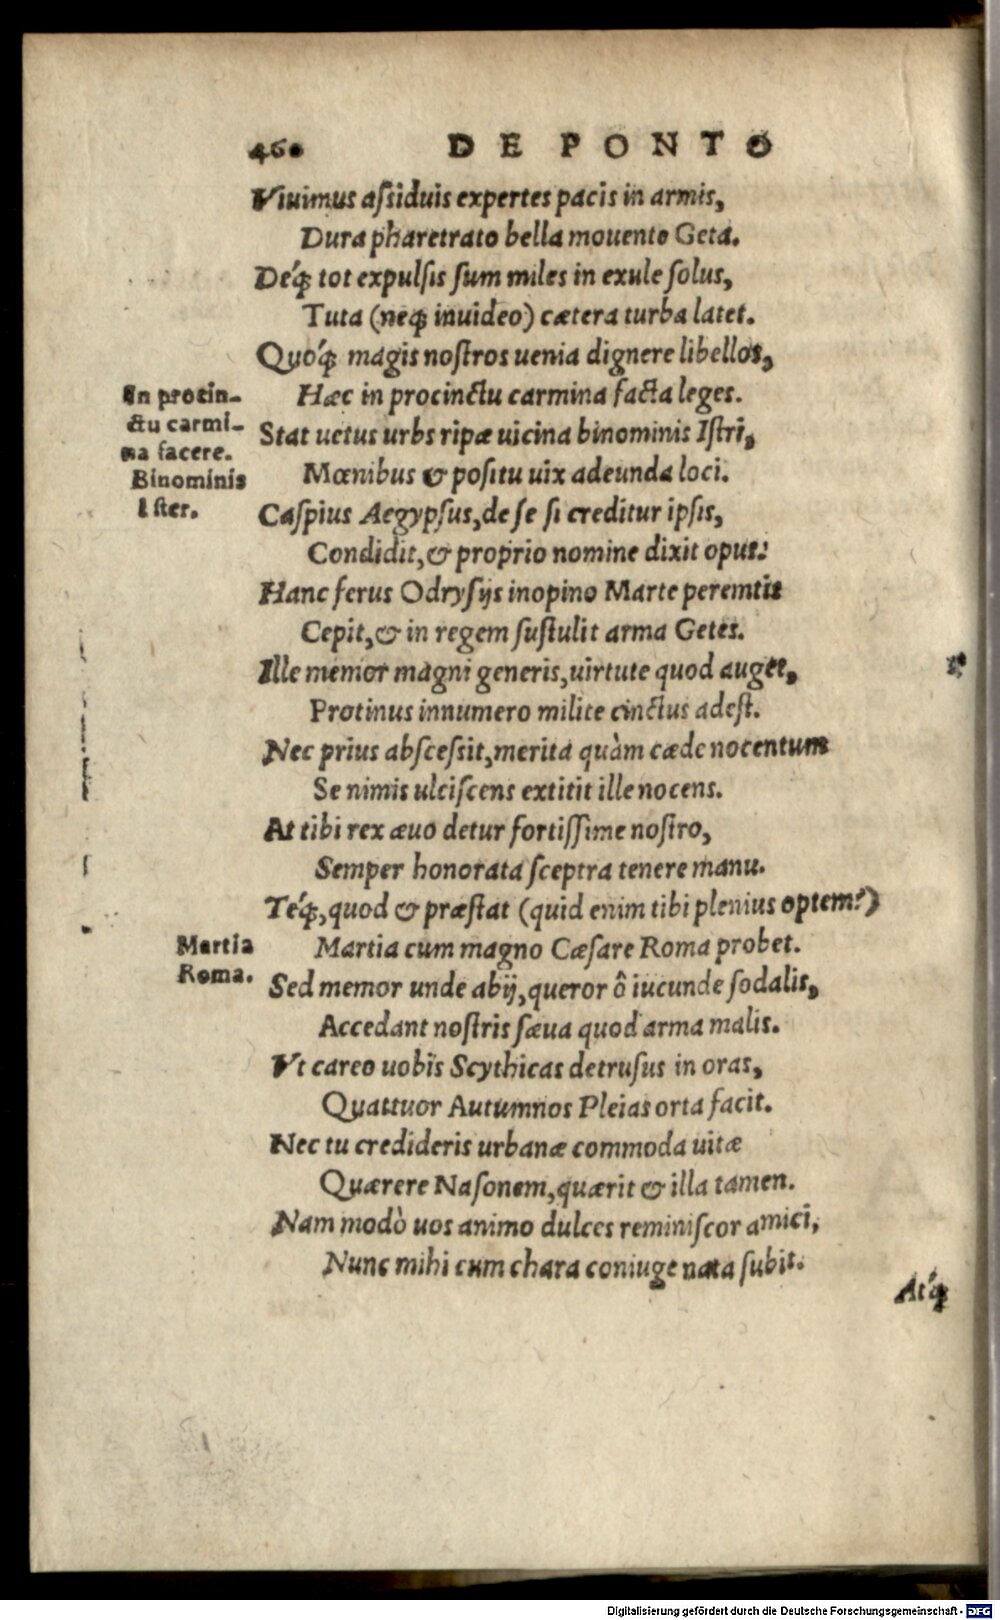 460 DE PONTO
Viuimus aſsiduis expertes pacis in armis,
Dura pharetrato bella mouente Geta.
Déq́; tot expulſis ſum miles in exule ſolus,
Tuta (neq; inuideo) cætera turba latet.
Quóq́; magis noſtros uenia dignere libellos,
Hæc in procinctu carmina facta leges.
Stat uetus urbs ripæ uicina binominis Iſtri,
Mœnibus & poſitu uix adeunda loci.
Caſpius Aegypſus, de ſe ſi creditur ipſis,
Condidit, & proprio nomine dixit opus:
Hanc ferus Odryſijs inopino Marte peremtis
Cepit, & in regem ſuſtulit arma Getes.
Ille memor magni generis, uirtute quod auget,
Protinus innumero milite cinctus adeſt.
Nec prius abſceſsit, merita quàm cæde nocentum
Se nimis ulciſcens extitit ille nocens.
At tibi rex æuo detur fortiſſime noſtro,
Semper honorata ſceptra tenere manu.
Téq́;, quod & præſtat (quid enim tibi plenius optem?)
Martia cum magno Cæſare Roma probet.
Sed memor unde abij, queror ô iucunde ſodalis,
Accedant noſtris ſæua quod arma malis.
Vt careo uobis Scythicas detruſus in oras,
Quattuor Autumnos Pleias orta facit.
Nec tu credideris urbanæ commoda uitæ
Quærere Naſonem, quærit & illa tamen.
Nam modò uos animo dulces reminiſcor amici,
Nunc mihi cum chara coniuge nata ſubit.
Atq́;
In procin-
ctu carmi-
na facere.
Binominis
Iſter.
Martia
Roma.
Digitalisierung gefördert durch die Deutsche Forschungsgemeinschaft - DFG